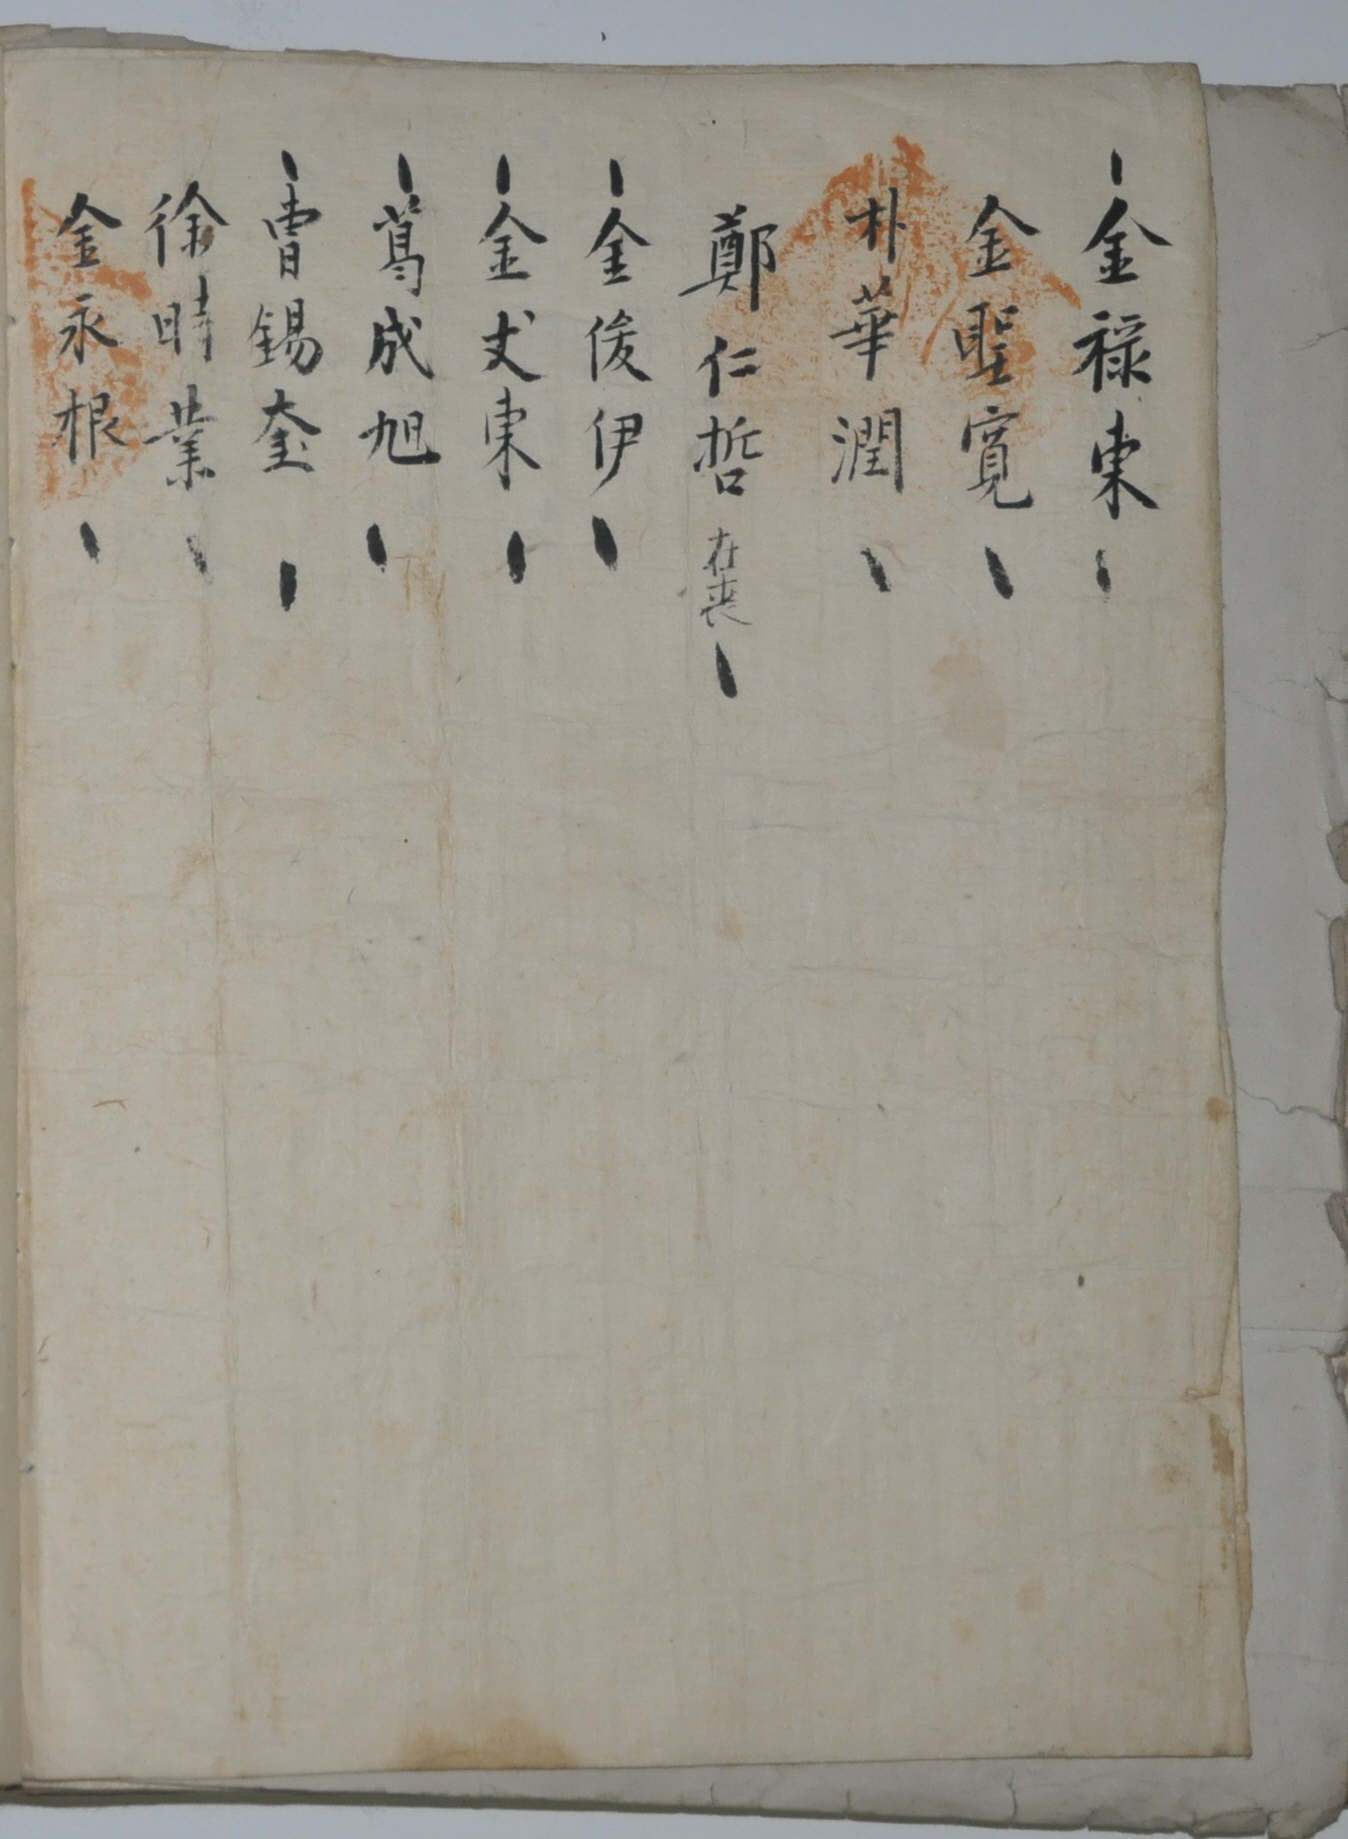 金祿東
金聖寬
朴華潤
鄭仁哲 在喪
金俊伊
金丈東
葛成旭
曺錫奎
徐時業
金永根